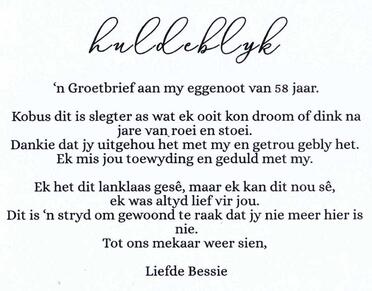 huldeblyk
'n Groetbrief aan my eggenoot van 58 jaar.
Kobus dit is slegter as wat ek ooit kon droom of dink na
jare van roei en stoei.
Dankie dat jy uitgehou het met my en getrou gebly het.
Ek mis jou toewyding en geduld met my.
Ek het dit lanklaas gesê, maar ek kan dit nou sê,
ek was altyd lief vir jou.
Dit is 'n stryd om gewoond te raak dat jy nie meer hier is
nie.
Tot ons mekaar weer sien,
Liefde Bessie